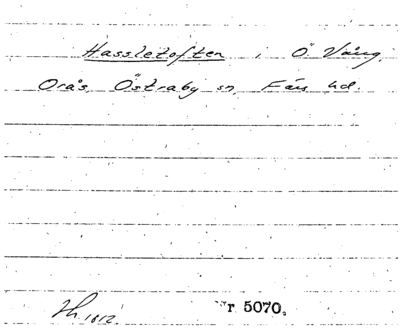 Hassletoften i Ö. Vång,
Orås, Östraby sn, Färs hd.
Nr 5070.
1812.